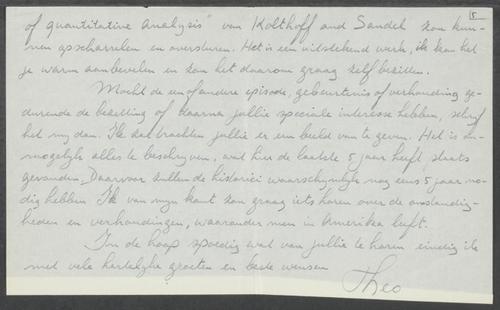 5
of quantitative analysis" van Kolthoff and Sandel zou kun-
nen opscharrelen en oversturen. Het is een uitstekend werk, ik kan het
je warm aanbevelen en zou het daarom graag zelf bezitten.
Mocht de een of andere episode, gebeurtenis of verhouding ge-
durende de bezetting of daarna jullie speciale interesse hebben, schrijf
het mij dan. Ik zal trachten jullie er een beeld van te geven. Het is on-
mogelijk alles te beschrijven, wat hier de laatste 5 jaar heeft plaats
gevonden. Daarvoor zullen de historici waarschijnlijk nog eens 5 jaar no-
dig hebben. Ik van mijn kant zou graag iets horen over de omstandig-
heden en verhoudingen, waaronder men in Amerika leeft.
In de hoop spoedig wat van jullie te horen eindig ik
met vele hartelijke groeten en beste wensen
Theo